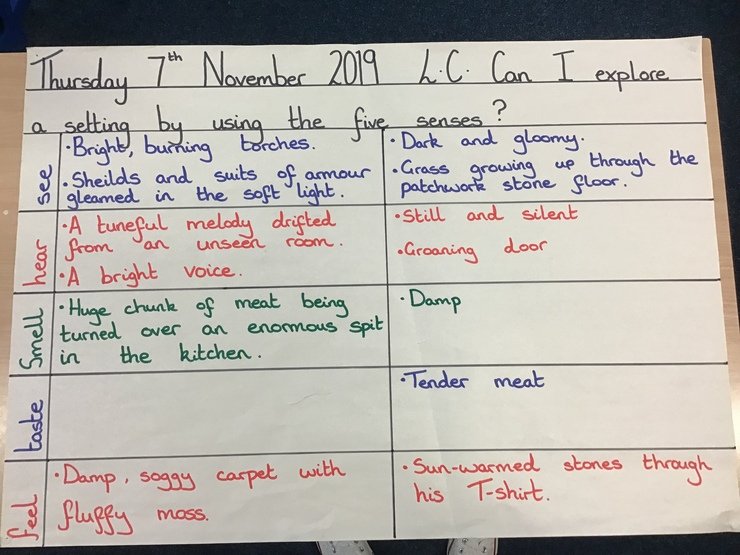 Thursday 7th November 2019 L.C. Can I explore
a setting by using the five senses?
see
·Bright, burning torches.
·Sheilds and suits of armour
gleamed in the soft light.
·Dark and gloomy.
·Grass growing up through the
patchwork stone floor.
hear
·A tuneful melody drifted
from an unseen room.
·A bright voice.
·Still and silent
·Groaning door
Smell
·Huge chunk of meat being
turned over an enormous spit
in the kitchen.
·Damp
taste
·Tender meat
feel
·Damp, soggy carpet with
fluffy moss.
·Sun-warmed stones through
his T-shirt.